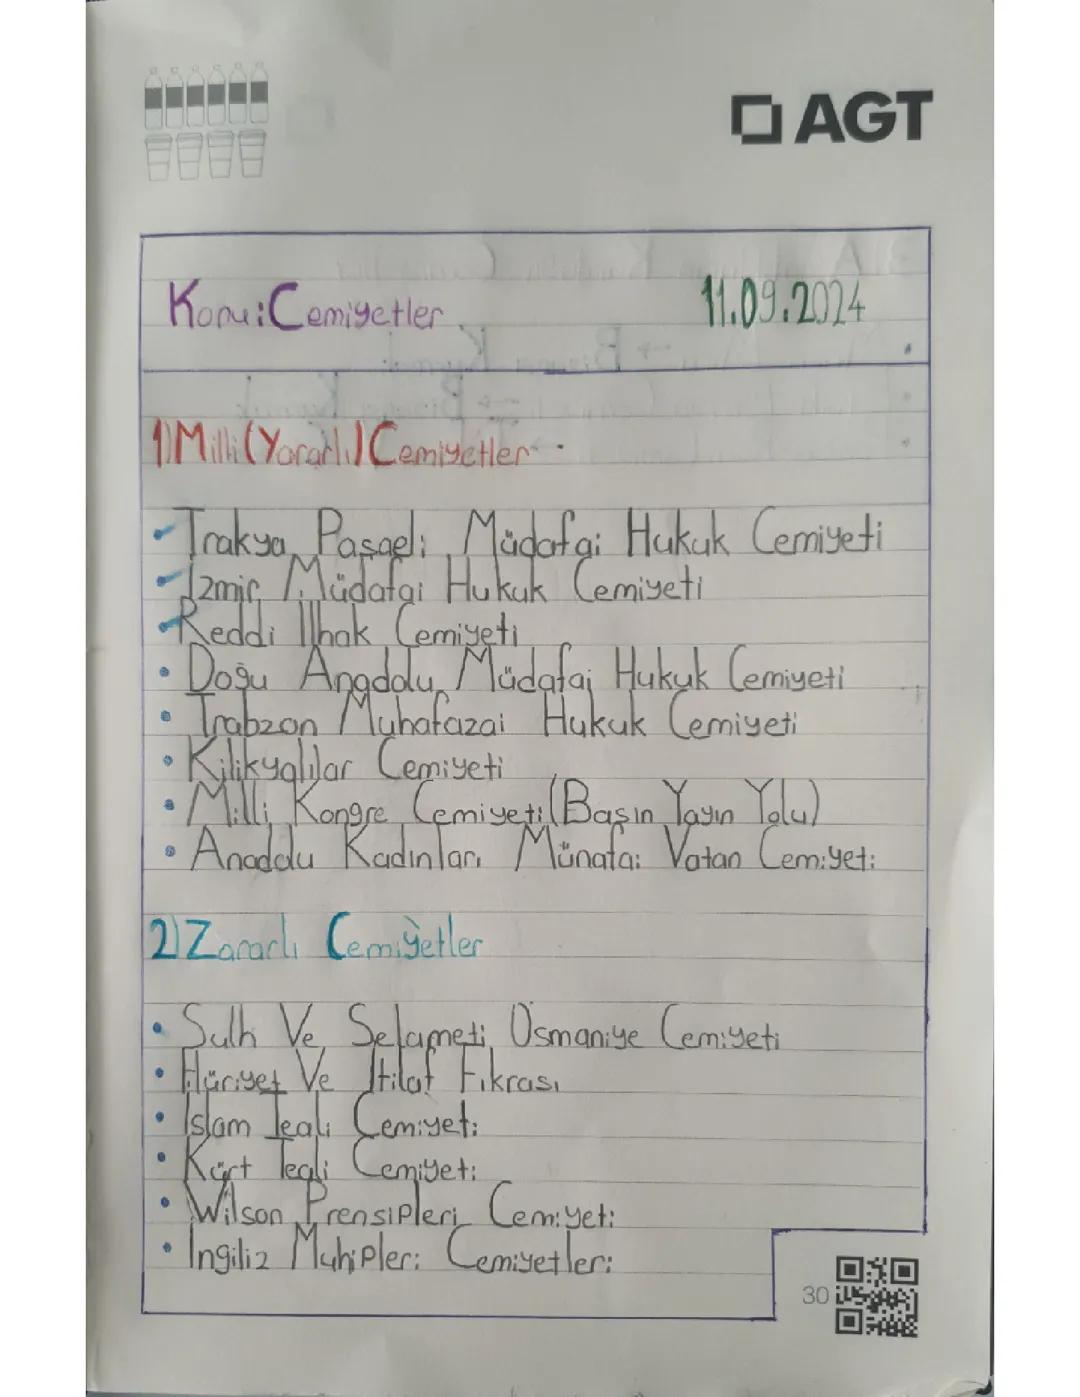 AGT
Konu:Cemiyetler
11.09.2024
1)Milli(Yararlı)Cemiyetler
Trakya Paşaeli Müdafai Hukuk Cemiyeti
İzmir Müdafai Hukuk Cemiyeti
Reddi İlhak Cemiyeti
• Doğu Anadolu Müdafai Hukuk Cemiyeti
• Trabzon Muhafazai Hukuk Cemiyeti
• Kilikyalılar Cemiyeti
• Milli Kongre Cemiyeti(Basın Yayın Yolu)
• Anadolu Kadınları Münafai Vatan Cemiyeti
2)Zararlı Cemiyetler
• Sulh Ve Selameti Osmaniye Cemiyeti
• Hüriyet Ve İtilaf Fıkrası
• İslam Teali Cemiyeti
• Kürt Teali Cemiyeti
• Wilson Prensipleri Cemiyeti
• İngiliz Muhipleri Cemiyetleri
30